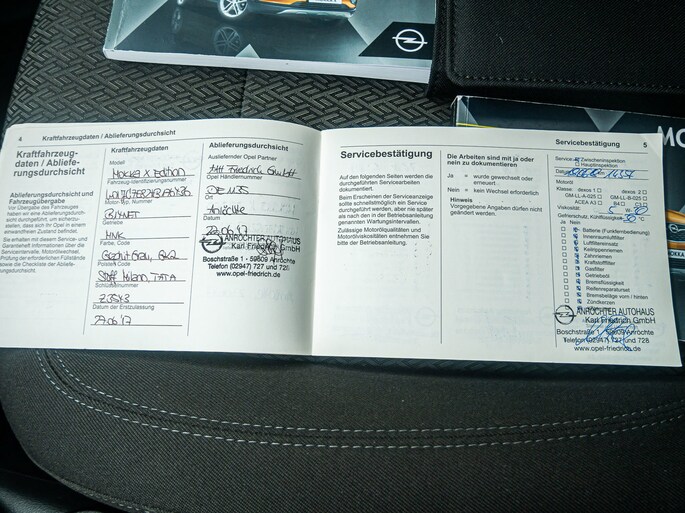 4 Kraftfahrzeugdaten / Ablieferungsdurchsicht
Kraftfahrzeug-
daten / Abliefe-
rungsdurchsicht
Ablieferungsdurchsicht und
Fahrzeugübergabe
Vor Übergabe des Fahrzeuges
haben wir eine Ablieferungsdurch-
sicht durchgeführt, um sicherzu-
stellen, dass sich Ihr Opel in einem
einwandfreien Zustand befindet.
Sie erhalten mit diesem Service- und
Garantieheft Informationen über die
Serviceintervalle, Motorölwechsel,
Prüfung der erforderlichen Füllstände
sowie die Checkliste der Abliefe-
rungsdurchsicht.
Kraftfahrzeugdaten
Modell
Mokka X Edition
Fahrzeug-Identifizierungsnummer
Motor-Typ, Nummer
Getriebe
MNK
Farbe, Code
Polster, Code
Stoff Milano, TATA
Schlüsselnummer
Datum der Erstzulassung
29.06.17
Ablieferungsdurchsicht
Ausliefernder Opel Partner
AH Friedrich GmbH
Opel Händlernummer
DE 1135
Ort
Anröchte
Datum
22.06.17
ANRÖCHTER AUTOHAUS
Karl Friedrich GmbH
Boschstraße 1 - 59609 Anröchte
Telefon (02947) 727 und 728
www.opel-friedrich.de
Servicebestätigung 5
Servicebestätigung
Auf den folgenden Seiten werden die
durchgeführten Servicearbeiten
dokumentiert.
Beim Erscheinen der Serviceanzeige
sollte schnellstmöglich ein Service
durchgeführt werden, aber nie später
als nach den in der Betriebsanleitung
genannten Wartungsintervallen.
Zulässige Motorölqualitäten und
Motorölviskositäten entnehmen Sie
bitte der Betriebsanleitung.
Die Arbeiten sind mit ja oder
nein zu dokumentieren
Ja = wurde gewechselt oder
erneuert
Nein = kein Wechsel erforderlich
Hinweis
Vorgegebene Angaben dürfen nicht
geändert werden.
Service: Zwischeninspektion
Hauptinspektion
Motoröl
Klasse: dexos 1 dexos 2
GM-LL-A-025 GM-LL-B-025
ACEA A3 B4 C3
Viskosität: 5 W- 30
Gefrierschutz, Kühlflüssigkeit °C
Ja Nein
Batterie (Funkfernbedienung)
Innenraumluftfilter
Luftfiltereinsatz
Keilrippenriemen
Zahnriemen
Kraftstofffilter
Gasfilter
Getriebeöl
Bremsflüssigkeit
Reifenreparaturset
Bremsbeläge vorn / hinten
Zündkerzen
ANRÖCHTER AUTOHAUS
Karl Friedrich GmbH
Boschstraße 1 - 59609 Anröchte
Telefon (02947) 727 und 728
www.opel-friedrich.de